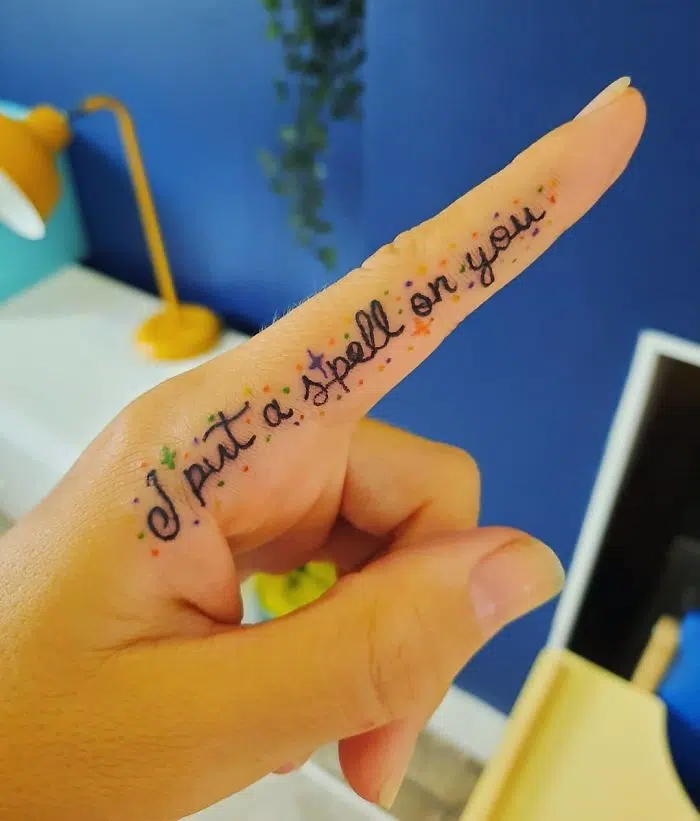 I put a spell on you